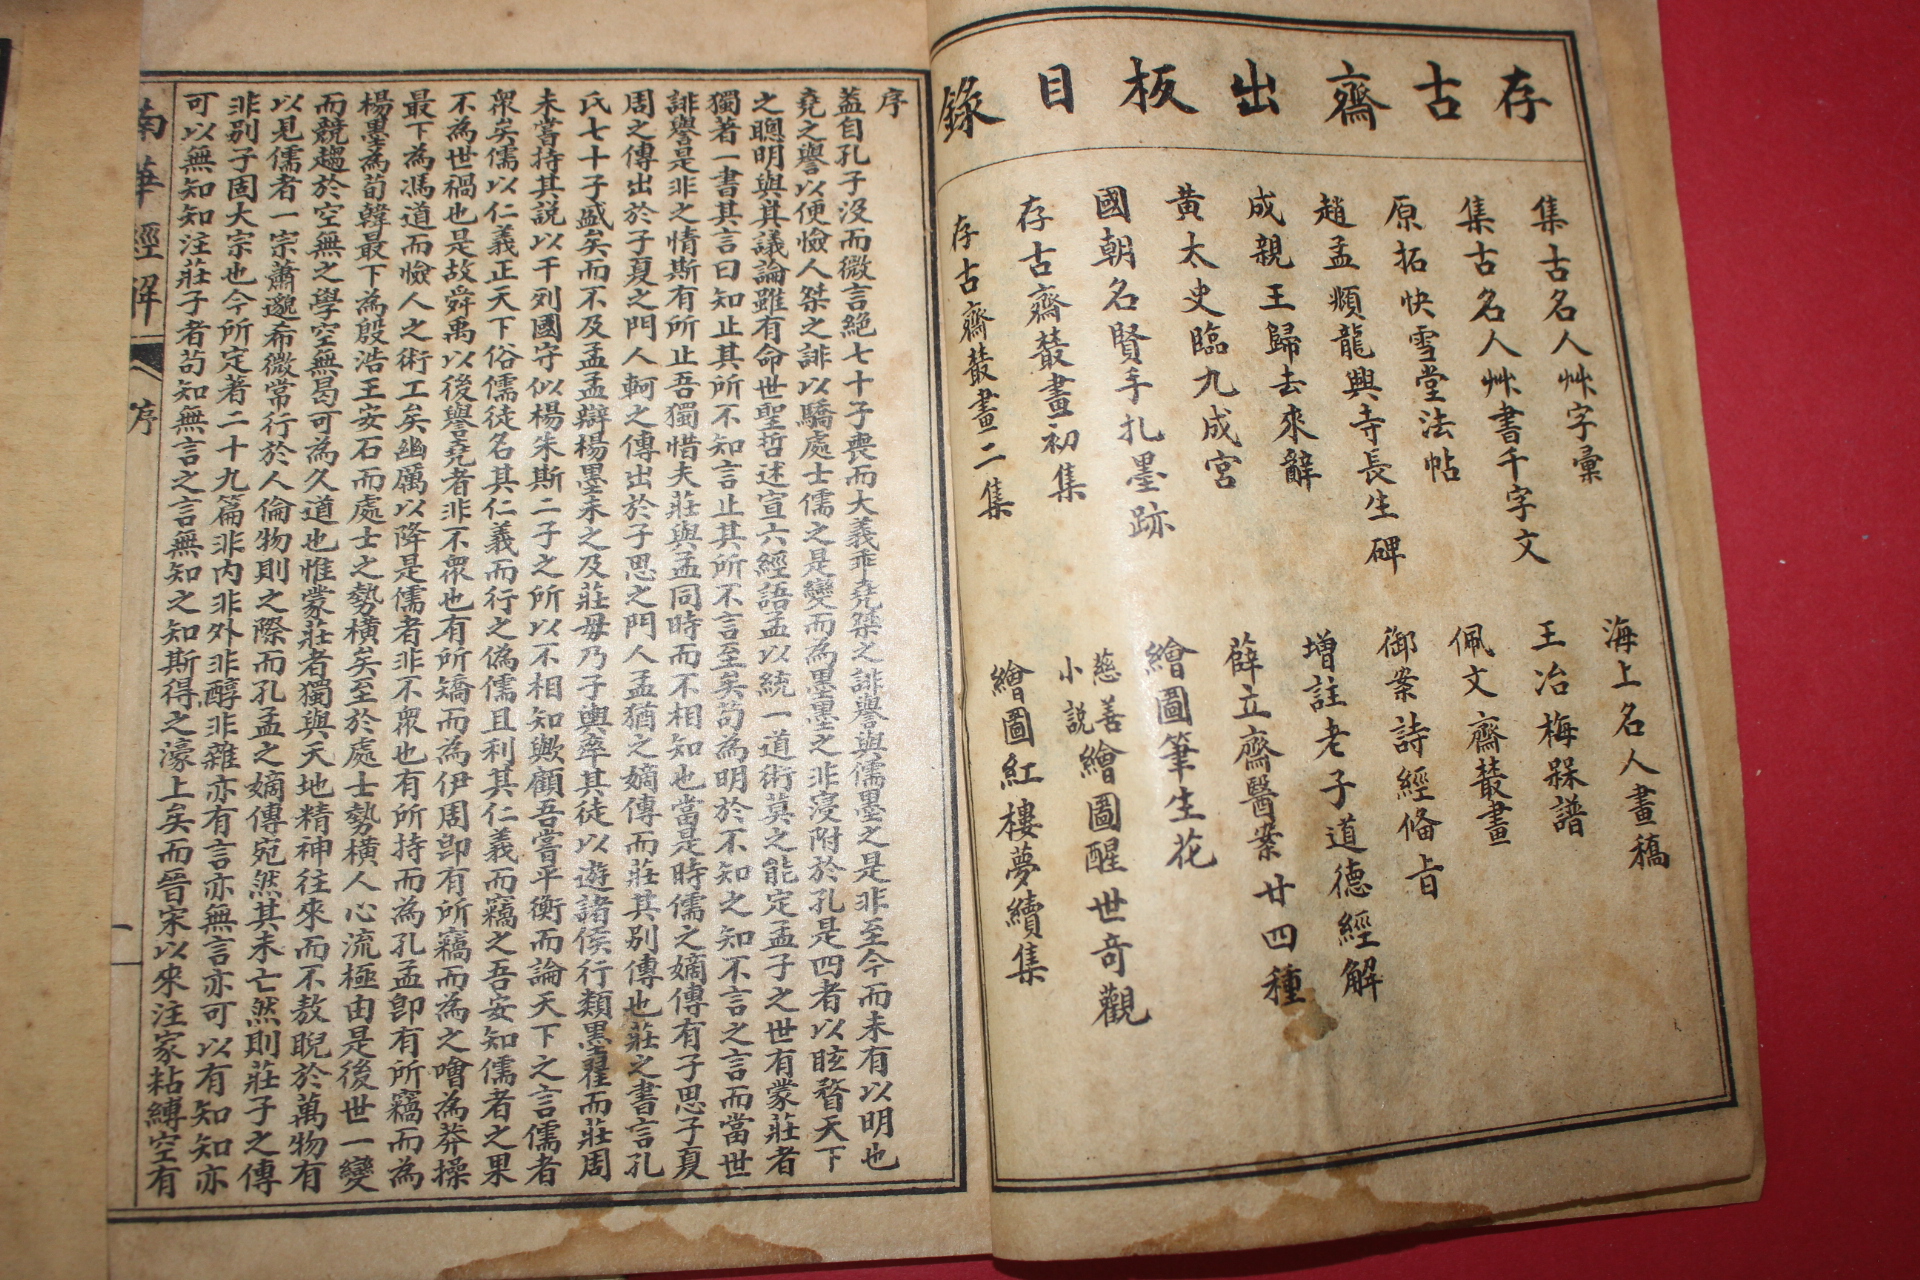 存古齋出板目錄
集古名人艸字彙
集古名人艸書千字文
原拓快雪堂法帖
趙孟頫龍興寺長生碑
成親王歸去來辭
黃太史臨九成宮
國朝名賢手扎墨跡
存古齋叢畫初集
存古齋叢畫二集
海上名人畫稿
王冶梅槑譜
佩文齋叢畫
御案詩經俻旨
增註老子道德經解
薛立齋醫案廿四種
繪圖筆生花
慈善小説繪圖醒世奇觀
繪圖紅樓夢續集
序
蓋自孔子沒而微言絕七十子喪而大義乖堯桀之誹譽與儒墨之是非至今而未有以明也
堯之譽以便憸人桀之誹以驕處士儒之是變而為墨墨之非寖附於孔是四者以眩瞀天下
之聰明與其議論雖有命世聖哲述宣六經語孟以統一道術莫之能定孟子之世有蒙莊者
獨著一書其言曰知止其所不知言止其所不言至矣苟為明於不知之知不言之言而當世
誹譽是非之情斯有所止吾獨惜夫莊與孟同時而不相知也當是時儒之嫡傳有子思子夏
周之傳出於子夏之門人軻之傳出於子思之門人孟猶之嫡傳而莊其別傳也莊之書言孔
氏七十子盛矣而不及孟孟辯楊墨未之及莊毋乃子輿率其徒以遊諸侯行類墨翟而莊周
未嘗持其說以干列國守似楊朱斯二子之所以不相知歟顧吾嘗平衡而論天下之言儒者
眾矣儒以仁義正天下俗儒徒名其仁義而行之偽儒且利其仁義而竊之吾安知儒者之果
不為世禍也是故舜禹以後譽堯者非不眾也有所矯而為伊周卽有所竊而為之噲為莽操
最下為馮道而憸人之術工矣幽厲以降是儒者非不眾也有所持而為孔孟卽有所竊而為
楊墨為荀韓最下為殷浩王安石而處士之勢橫矣至於處士勢橫人心流極由是後世一變
而競趨於空無之學空無曷可為久道也惟蒙莊者獨與天地精神往來而不敖睨於萬物有
以見儒者一宗蕭邈希微常行於人倫物則之際而孔孟之嫡傳宛然其未亡然則莊子之傳
非別子固大宗也今所定著二十九篇非內非外非醇非雜亦有言亦無言亦可以有知知亦
可以無知知注莊子者苟知無言之言無知之知斯得之濠上矣而晉宋以來注家粘縛空有
南華經解
序
一